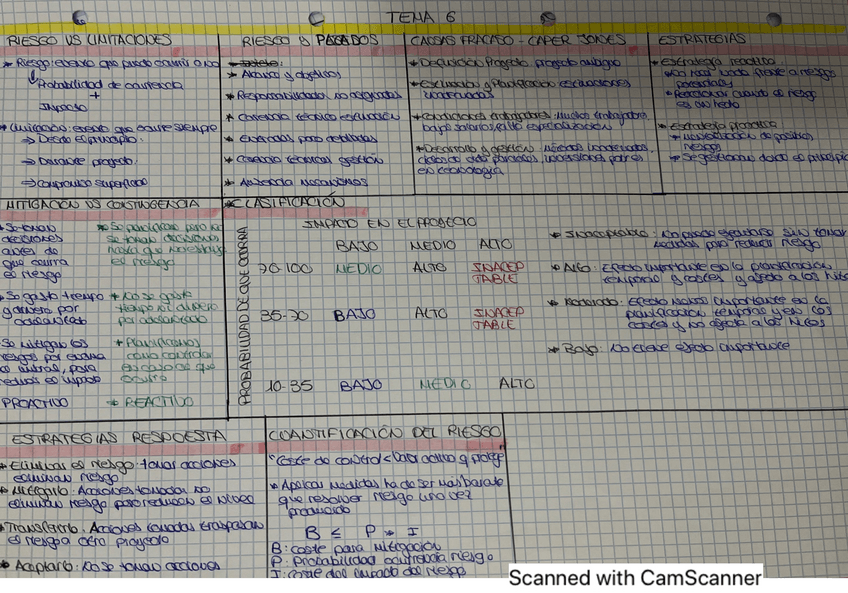 TEMA 6
RIESGO VS LIMITACIONES
* Riesgo: evento que puede ocurrir o no
Probabilidad de ocurrencia
+
Impacto
* Limitación: evento que ocurre siempre
→ Desde el principio
→ Durante proyecto
→ Compromiso superficial
RIESGO
* Alcance y objetivos
* Responsabilidades no asignadas
* Carencia técnica estimación
* Enunciados poco detallados
* Carencia técnicas gestión
* Ausencia mecanismos
CAUSAS FRACASO - CAPER JONES
* Definición Proyecto: proyecto ambiguo
* Estimación y Planificación: estimaciones
inadecuadas
bajo salario, sitio especialización
* Desarrollo y gestión: métodos inadecuados,
en tecnología
ESTRATEGIAS
* Estrategia reactiva
* No hacer nada frente a riesgos
potenciales
* Reaccionar cuando el riesgo
es un hecho
* Estrategia proactiva
* identificación de posibles
riesgos
* Se gestionan desde el principio
MITIGACIÓN VS CONTINGENCIA
* Se toman
decisiones
antes de
que ocurra
el riesgo
* Se planifican pero no
se toman decisiones
hasta que no exista
el riesgo
* Se gasta tiempo
y dinero por
adelantado
* No se gasta
tiempo ni dinero
por adelantado
Se mitigan los
riesgos por encima
reducir el impacto
* Planificamos
como controlar
en caso de que
ocurra
PROACTIVO
* REACTIVO
* CLASIFICACIÓN
IMPACTO EN EL PROYECTO
PROBABILIDAD DE QUE OCURRA
BAJO MEDIO ALTO
70-100 MEDIO ALTO INACEP
TABLE
35-70 BAJO ALTO INACEP
TABLE
10-35 BAJO MEDIO ALTO
* Inaceptable: No puede ejecutarse sin tomar
medidas para reducir riesgo
* Alto: Efecto importante en la planificación
temporal y costes y afecta a los hitos
* Moderado: Efecto menos importante en la
planificación temporal y en los
costes y no afecta a los hitos
* Bajo: No tiene efecto importante
ESTRATEGIAS RESPUESTA
* Eliminar el riesgo: tomar acciones
eliminan riesgo
* Mitigarlo: Acciones tomadas no
eliminan riesgo pero reducen el nivel
* Transferirlo: Acciones tomadas traspasan
el riesgo a otro proyecto
* Aceptarlo: No se toman acciones
CUANTIFICACIÓN DEL RIESGO
* Aplicar medidas ha de ser más barato
que resolver riesgo una vez
producido
B ≤ P * I
B: coste para mitigación
P: probabilidad ocurrencia riesgo
I: coste del impacto del riesgo
Scanned with CamScanner